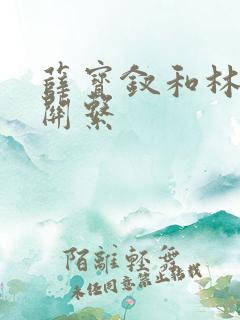 薛寶釵和林
關繫
陌離輕舞
未經同意禁止轉載